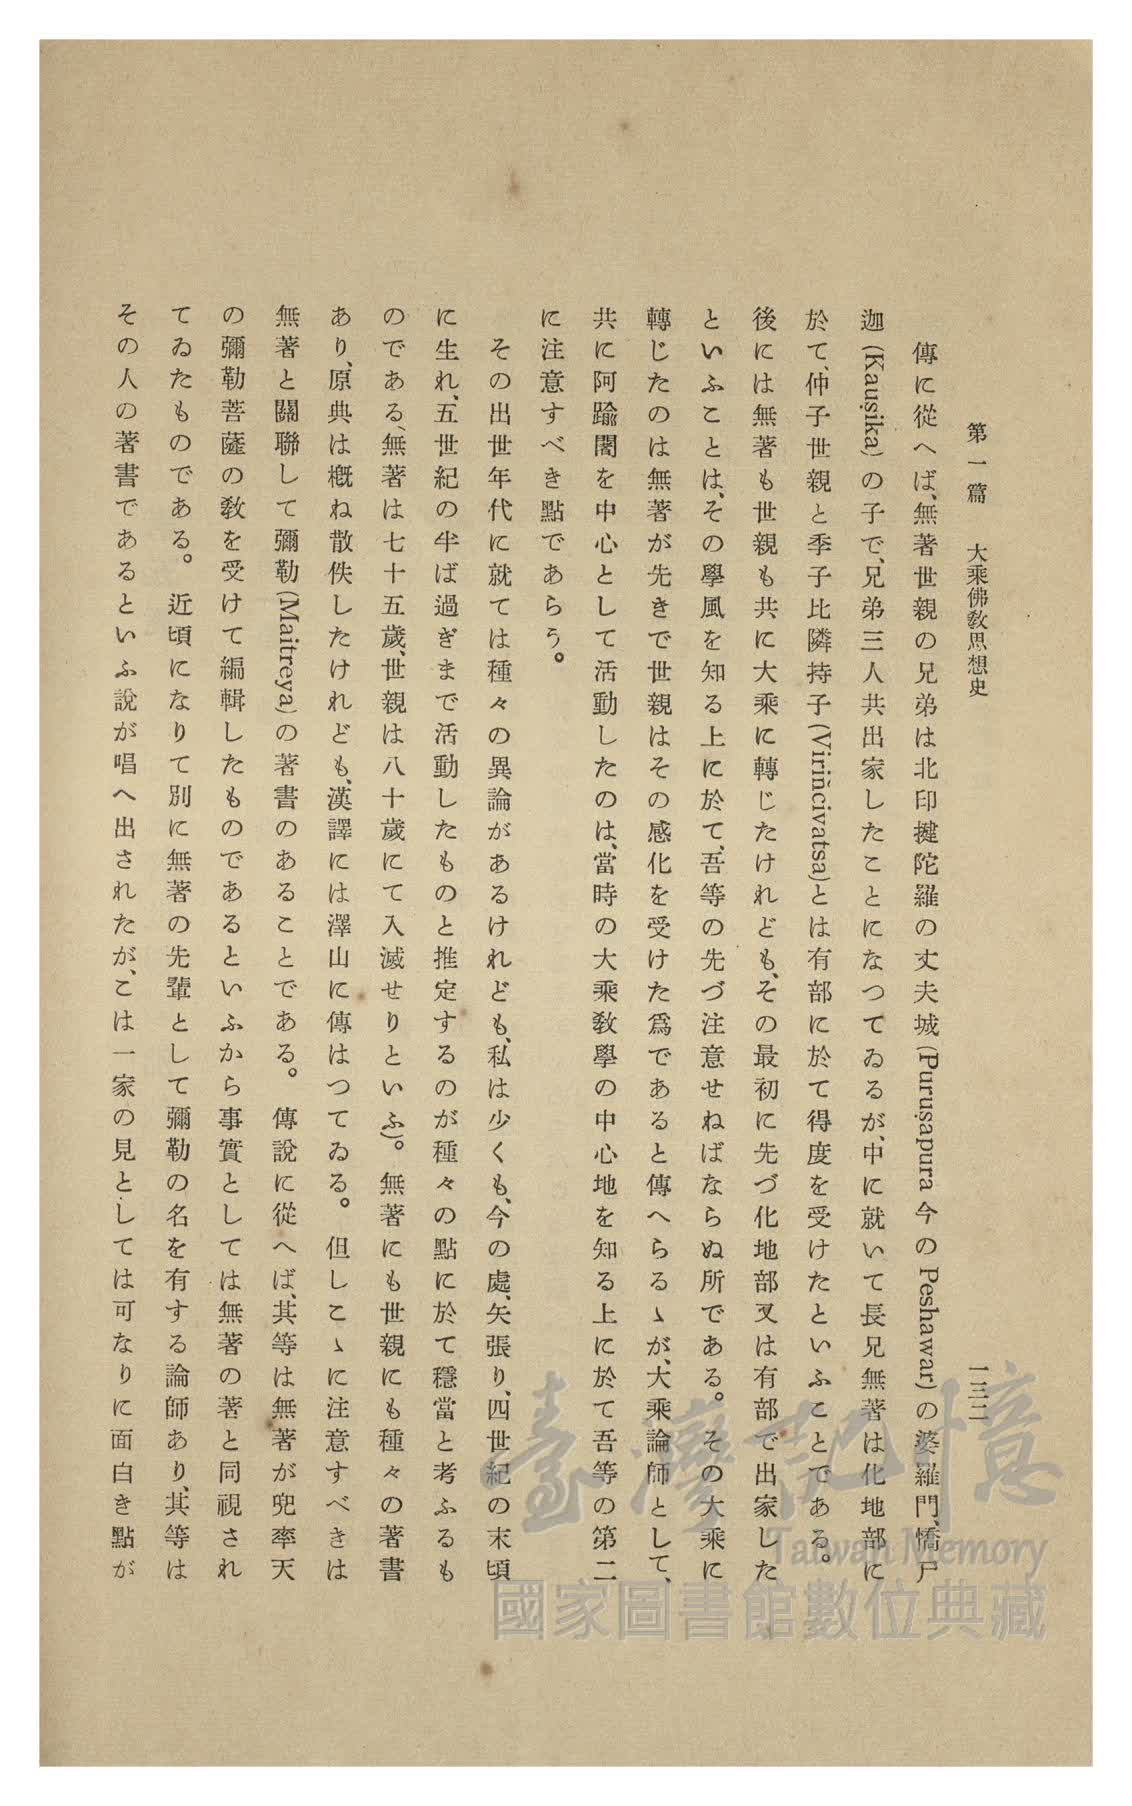 第一篇　大乘佛敎思想史
一三二
傳に從へば、無著世親の兄弟は北印揵陀羅の丈夫城(Puruṣapura 今の Peshawar)の婆羅門、憍尸
迦(Kauṣika)の子で、兄弟三人共出家したことになつてゐるが、中に就いて長兄無著は化地部に
於て、仲子世親と季子比隣持子(Viriñcivatsa)とは有部に於て得度を受けたといふことである。
後には無著も世親も共に大乘に轉じたけれども、その最初に先づ化地部又は有部で出家した
といふことは、その學風を知る上に於て、吾等の先づ注意せねばならぬ所である。その大乘に
轉じたのは無著が先きで世親はその感化を受けた爲であると傳へらるゝが、大乘論師として、
共に阿踰闍を中心として活動したのは、當時の大乘敎學の中心地を知る上に於て吾等の第二
に注意すべき點であらう。
その出世年代に就ては種々の異論があるけれども、私は少くも、今の處、矢張り、四世紀の末頃
に生れ、五世紀の半ば過ぎまで活動したものと推定するのが種々の點に於て穩當と考ふるも
のである、無著は七十五歲、世親は八十歲にて入滅せりといふ)。無著にも世親にも種々の著書
あり、原典は槪ね散佚したけれども、漢譯には澤山に傳はつてゐる。但しこゝに注意すべきは
無著と關聯して彌勒(Maitreya)の著書のあることである。傳說に從へば、其等は無著が兜率天
の彌勒菩薩の敎を受けて編輯したものであるといふから事實としては無著の著と同視され
てゐたものである。近頃になりて別に無著の先輩として彌勒の名を有する論師あり、其等は
その人の著書であるといふ說が唱へ出されたが、こは一家の見としては可なりに面白き點が
臺灣記憶
Taiwan Memory
國家圖書館數位典藏